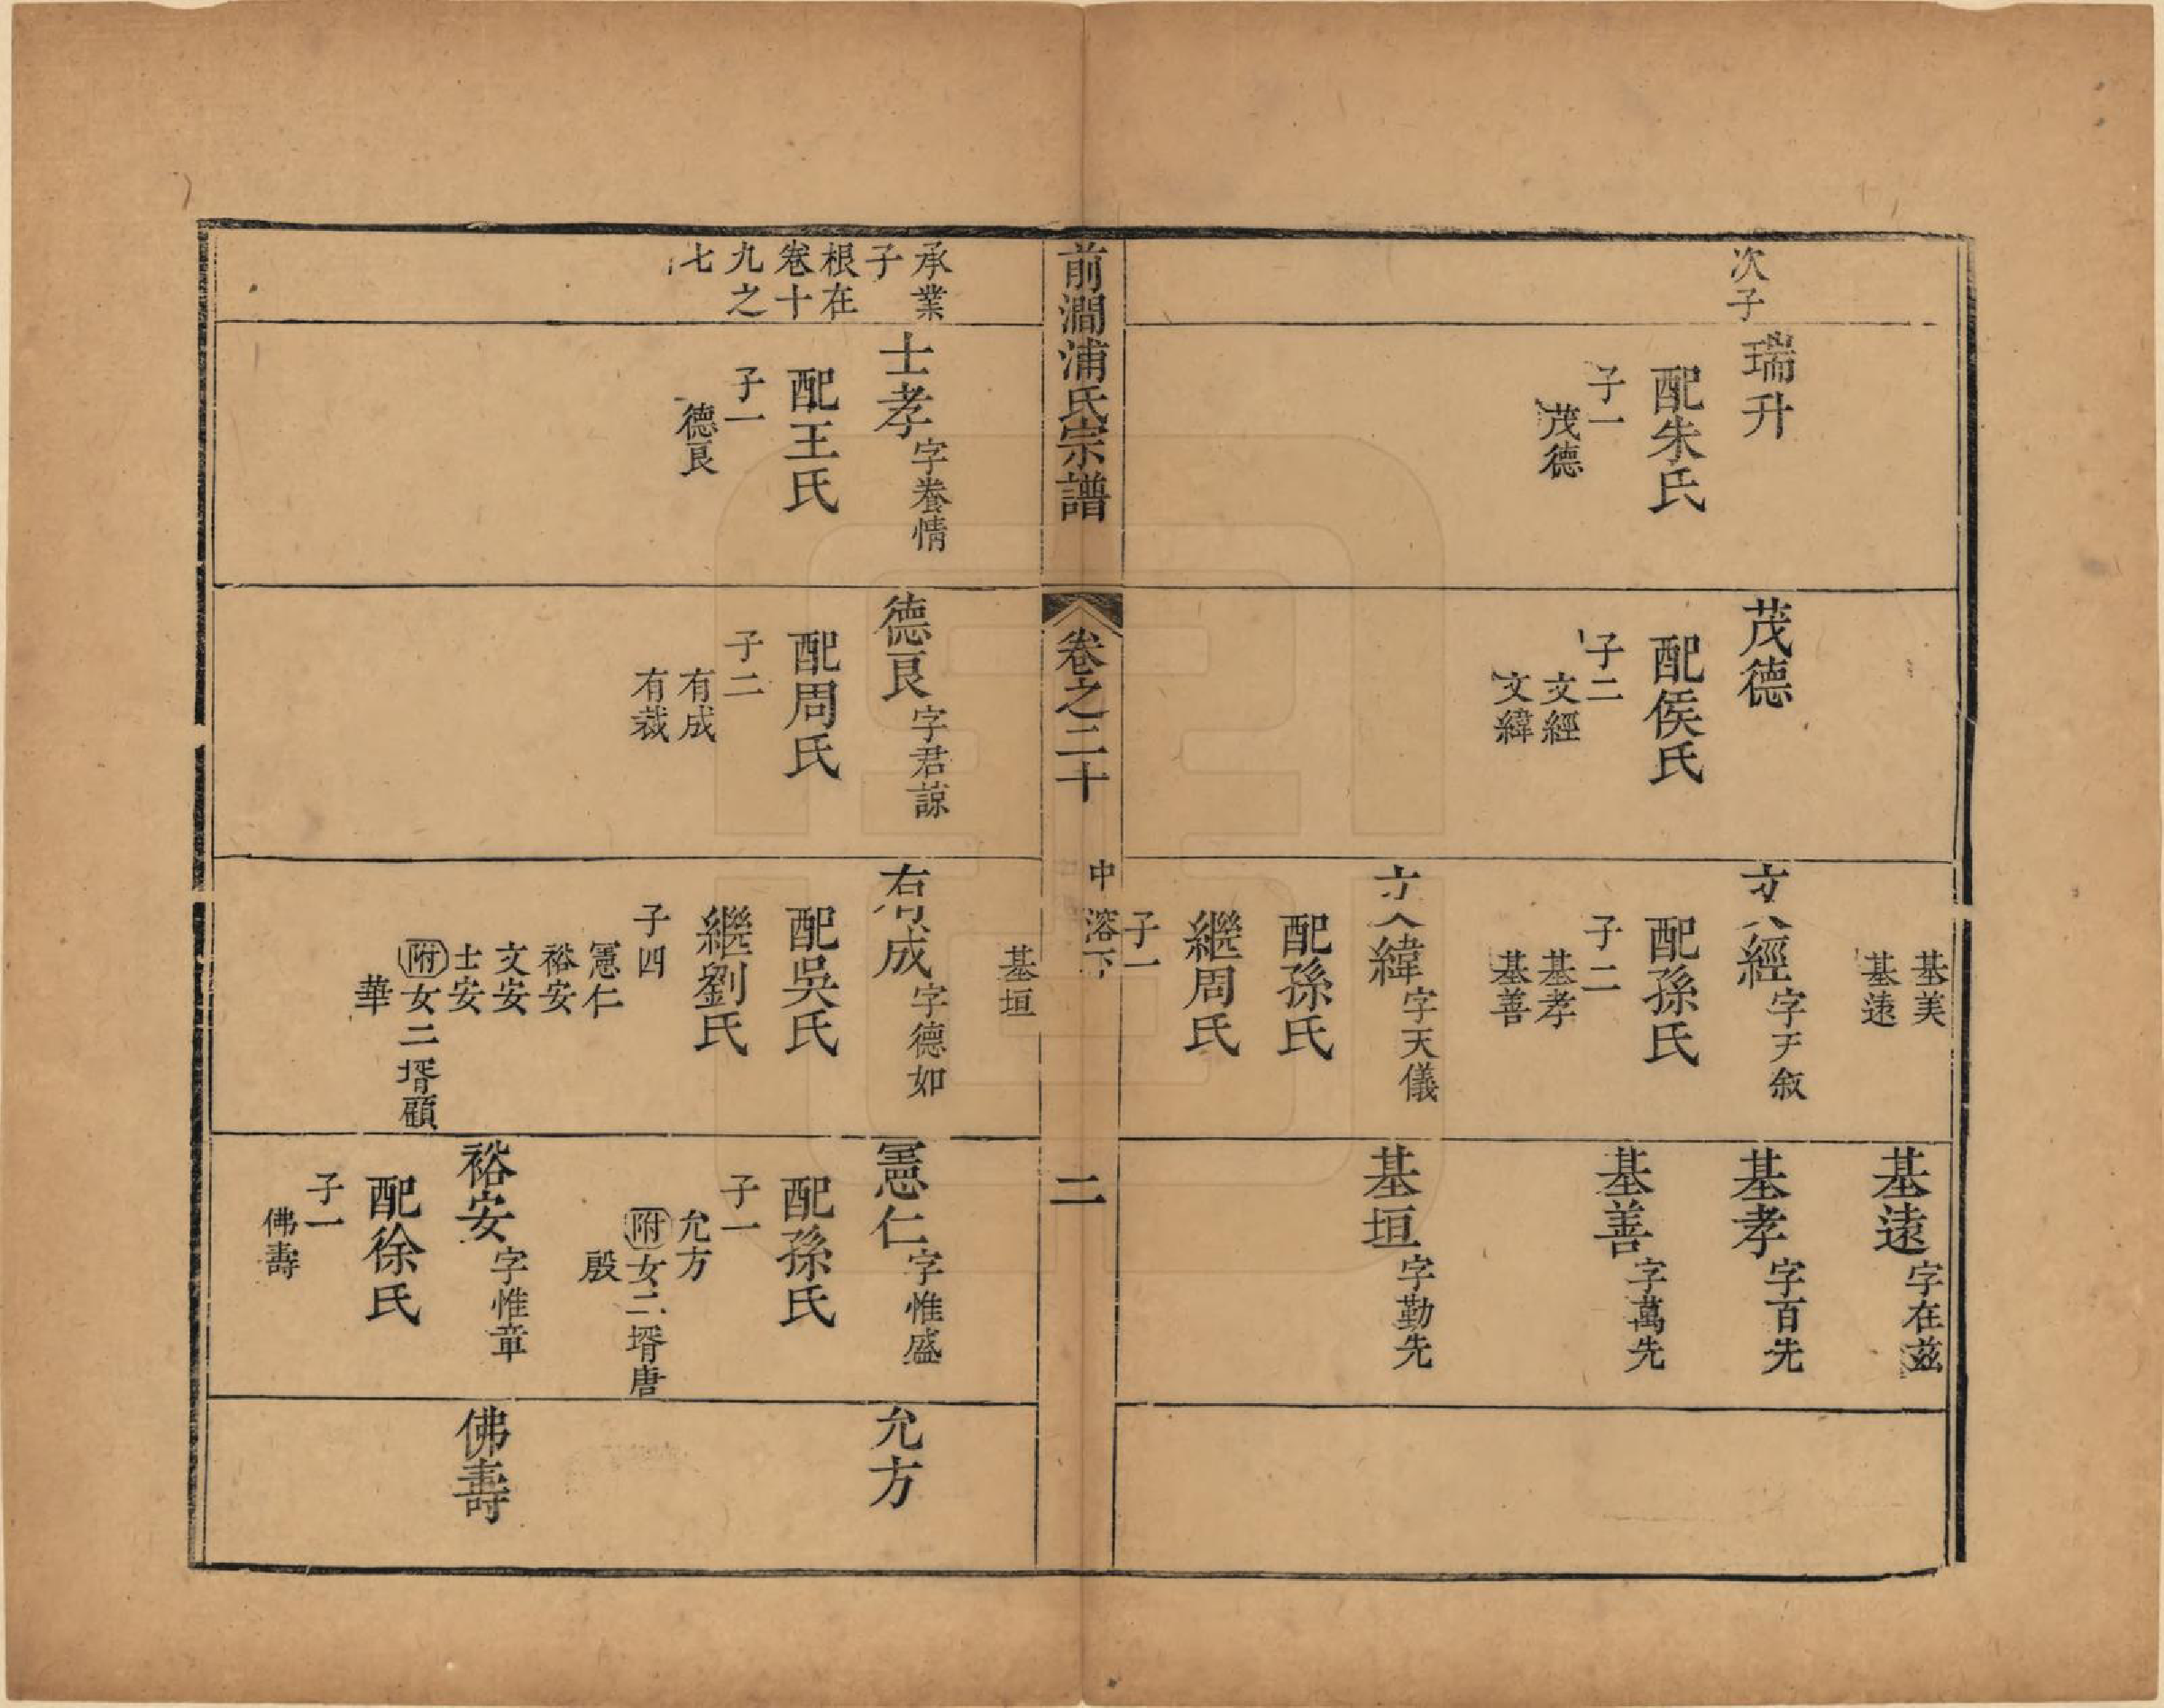 次子
瑞升
配朱氏
子一
茂德
茂德
配侯氏
子二
文經
文緯
基美
基遠
文經字天叙
配孫氏
子二
基孝
基善
文緯字天儀
配孫氏
繼周氏
子一
基遠字在茲
基孝字百先
基善字萬先
基垣字勤先
前澗浦氏宗譜
卷之二十
中溶下
二
承業
子
根在
卷十
九之
七
士孝字養情
配王氏
子一
德良
德良字君諒
配周氏
子二
有成
有裁
基垣
有成字德如
配吳氏
繼劉氏
子四
憲仁
裕安
文安
士安
附女二壻顧
華
憲仁字惟盛
配孫氏
子一
允方
附女二壻唐
殷
裕安字惟章
配徐氏
子一
佛壽
允方
佛壽